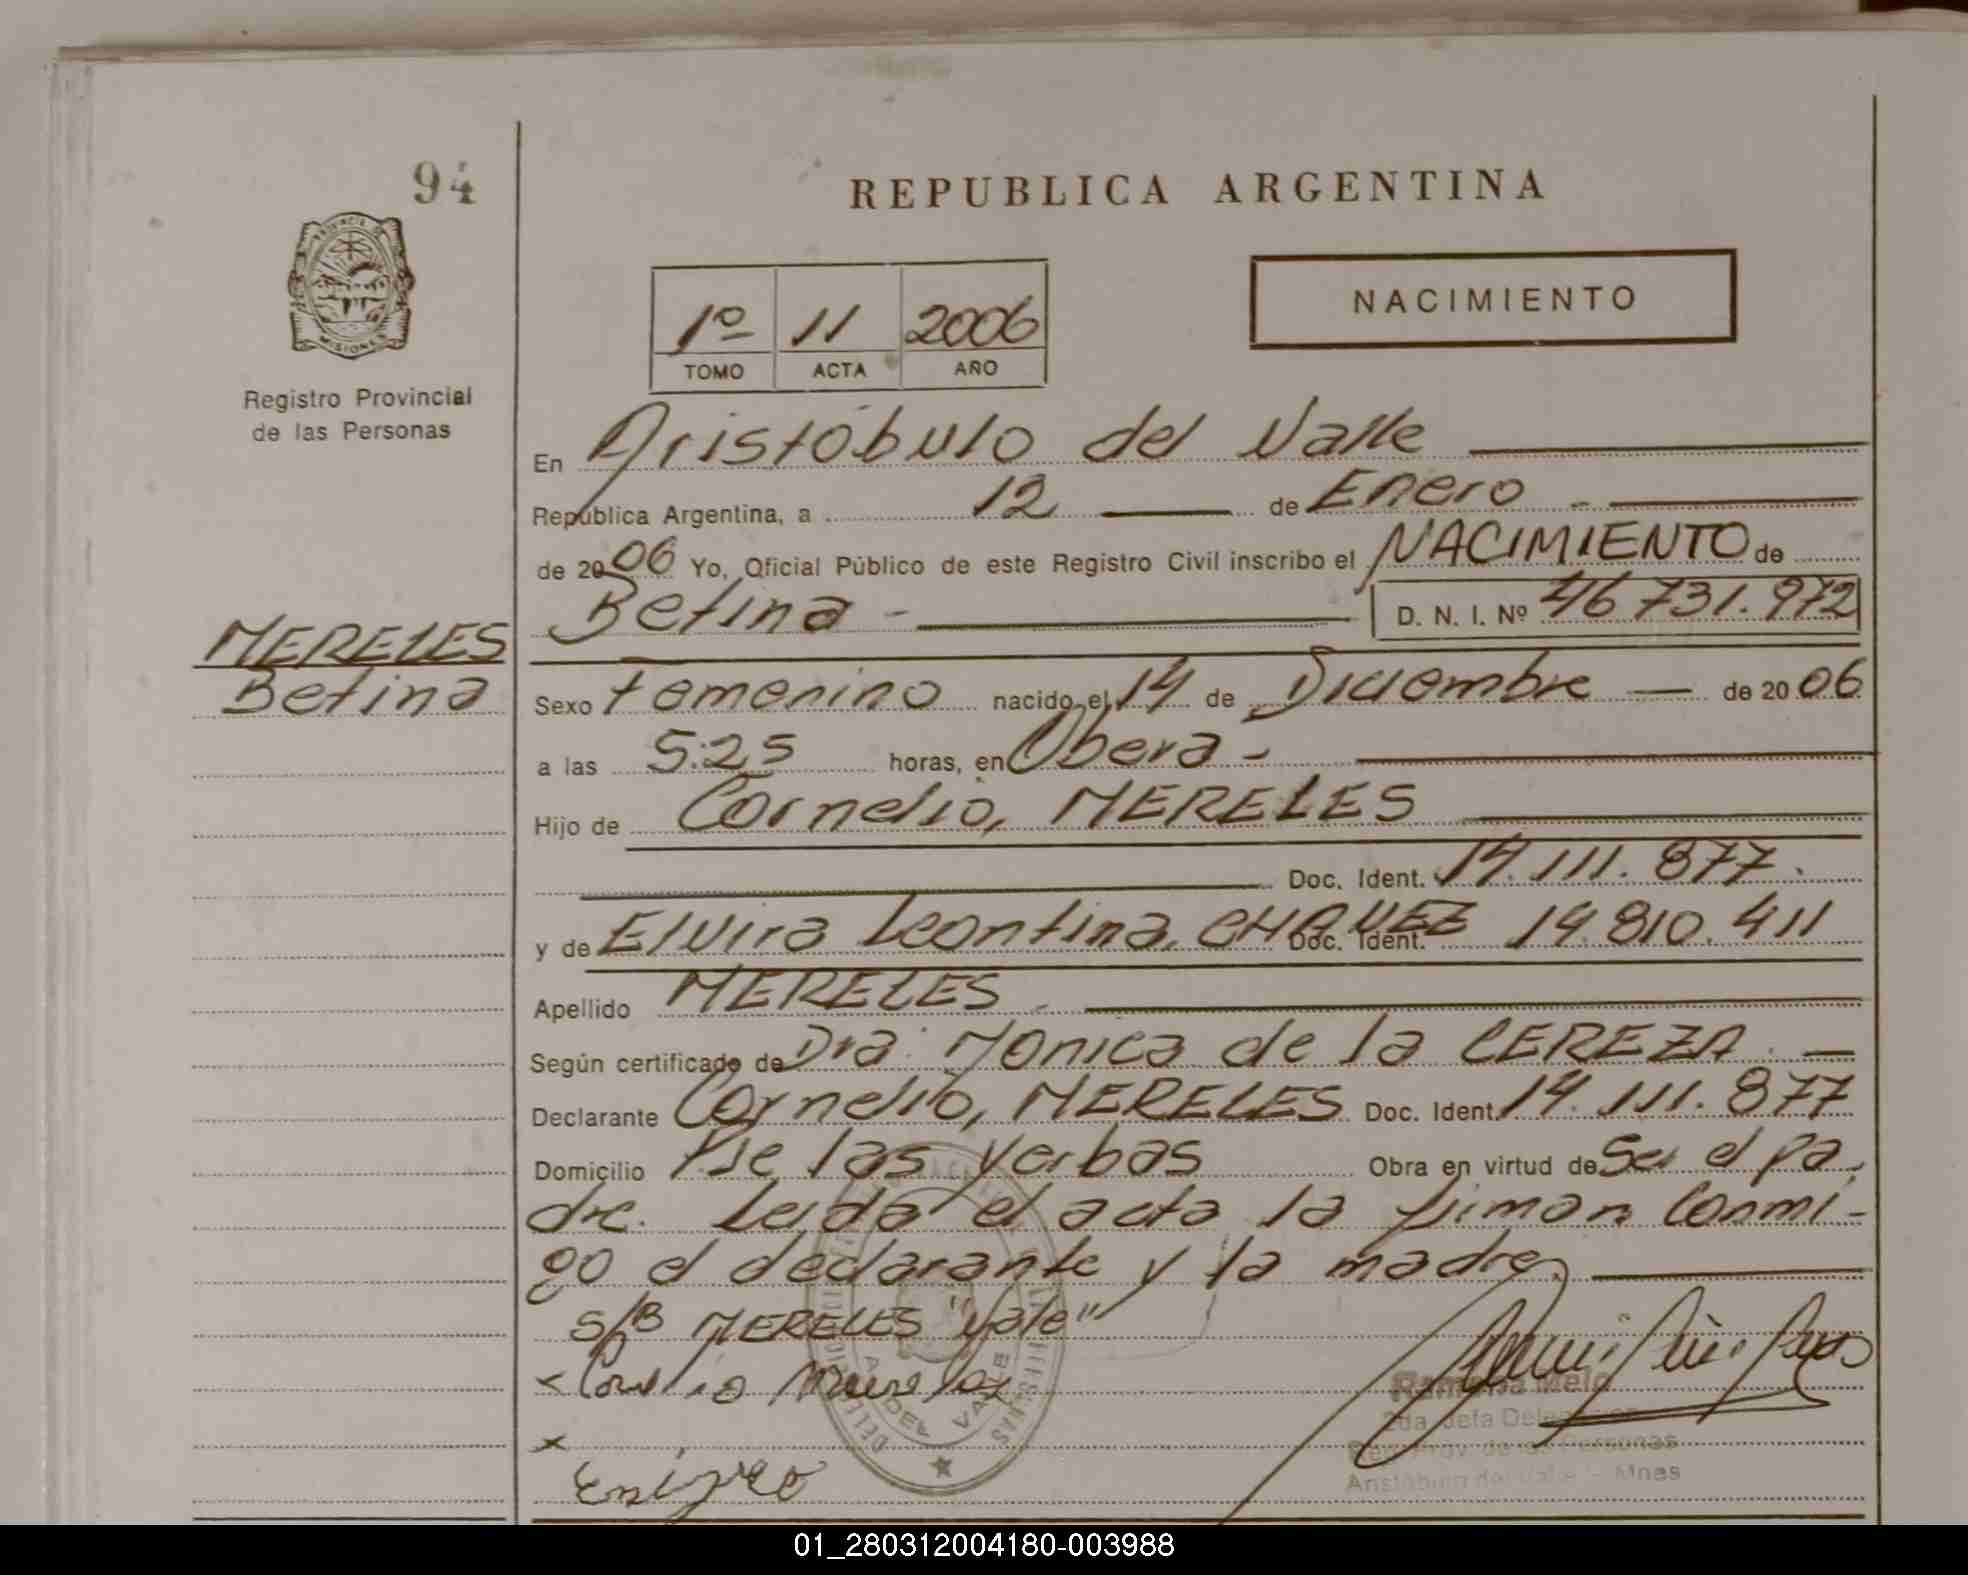 94
REPUBLICA ARGENTINA
PROVINCIA DE
MISIONES
Registro Provincial
de las Personas
1º 11 2006
TOMO ACTA AÑO
NACIMIENTO
En Aristóbulo del Valle
República Argentina, a 12 de Enero
de 2006 Yo, Oficial Público de este Registro Civil inscribo el NACIMIENTO de
Betina - D. N. I. Nº 46 731.972
MERELES
Betina
Sexo Femenino nacido el 14 de Diciembre de 2006
a las 5:25 horas, en Obera -
Hijo de Cornelio, MERELES
Doc. Ident. 14.111.877.
y de Elvira Leontina, CHAVEZ Doc. Ident. 14.810.411
Apellido MERELES
Según certificado de Dra. Monica de la CEREZA. —
Declarante Cornelio, MERELES Doc. Ident. 14.111.877
Domicilio Pje las yerbas Obra en virtud de Ser el pa
dre. Leida el acta la firman Conmi-
go el declarante y la madre
S/B MERELES "Vale"
x Cornelio Mereles
DEL VALLE
x
Ramona Melo
2da. Jefa Delegación
Reg. Prov. de las Personas
Aristóbulo del Valle - Mnes
01_280312004180-003988